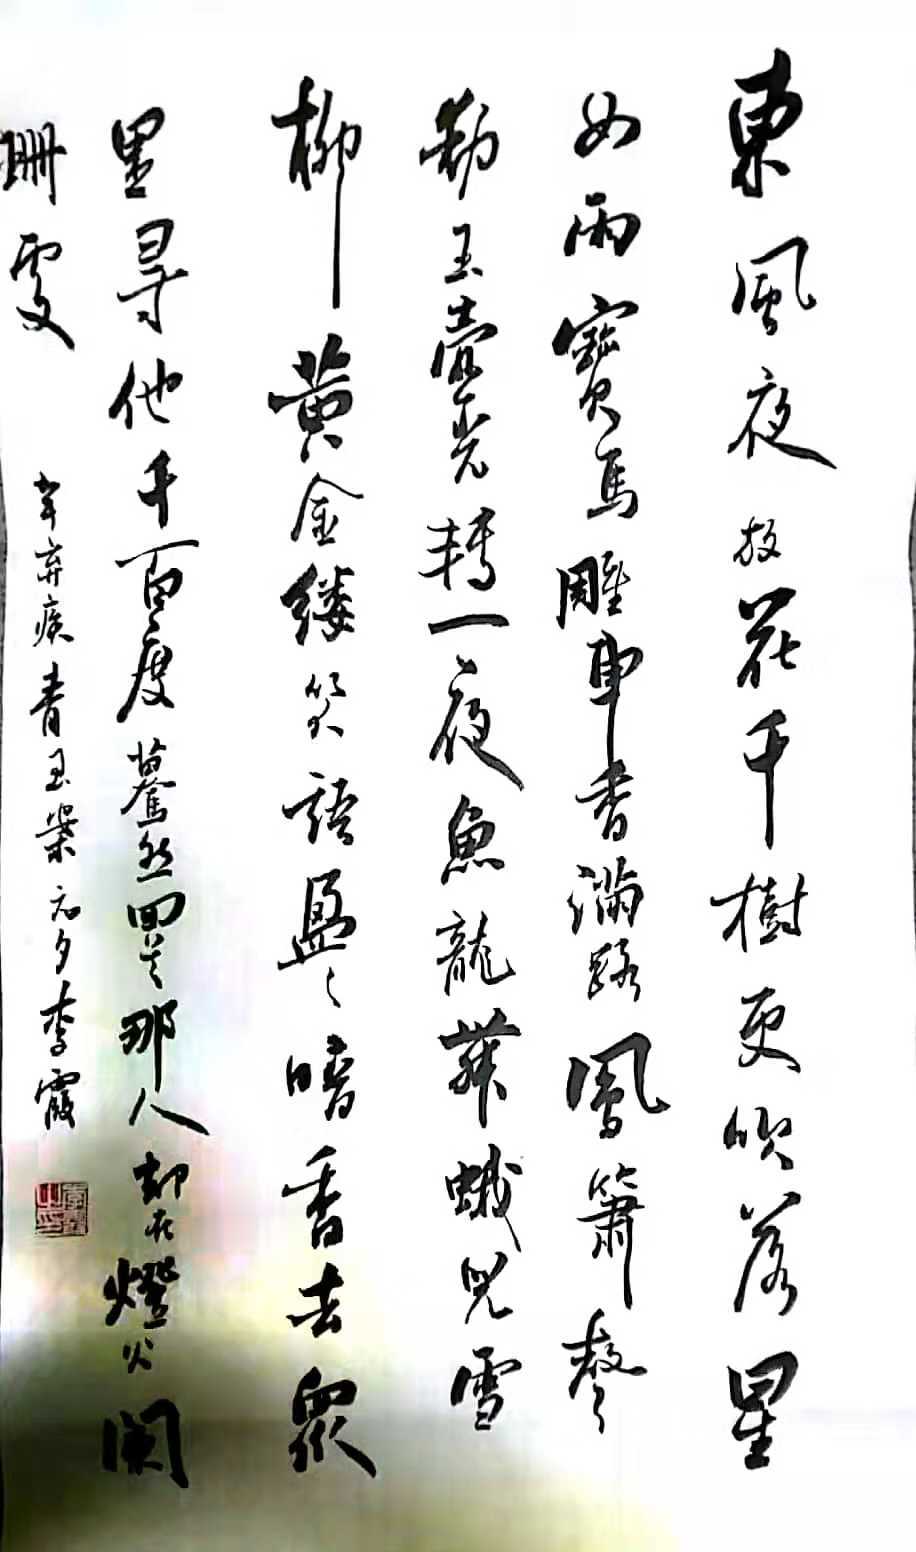 東風夜放花千樹更吹落星
如雨寶馬雕車香滿路鳳簫聲
動玉壺光轉一夜魚龍舞蛾兒雪
柳黃金縷笑語盈々暗香去眾
里尋他千百度驀然回首那人却在燈火闌
珊處
辛弃疾青玉案元夕李霞